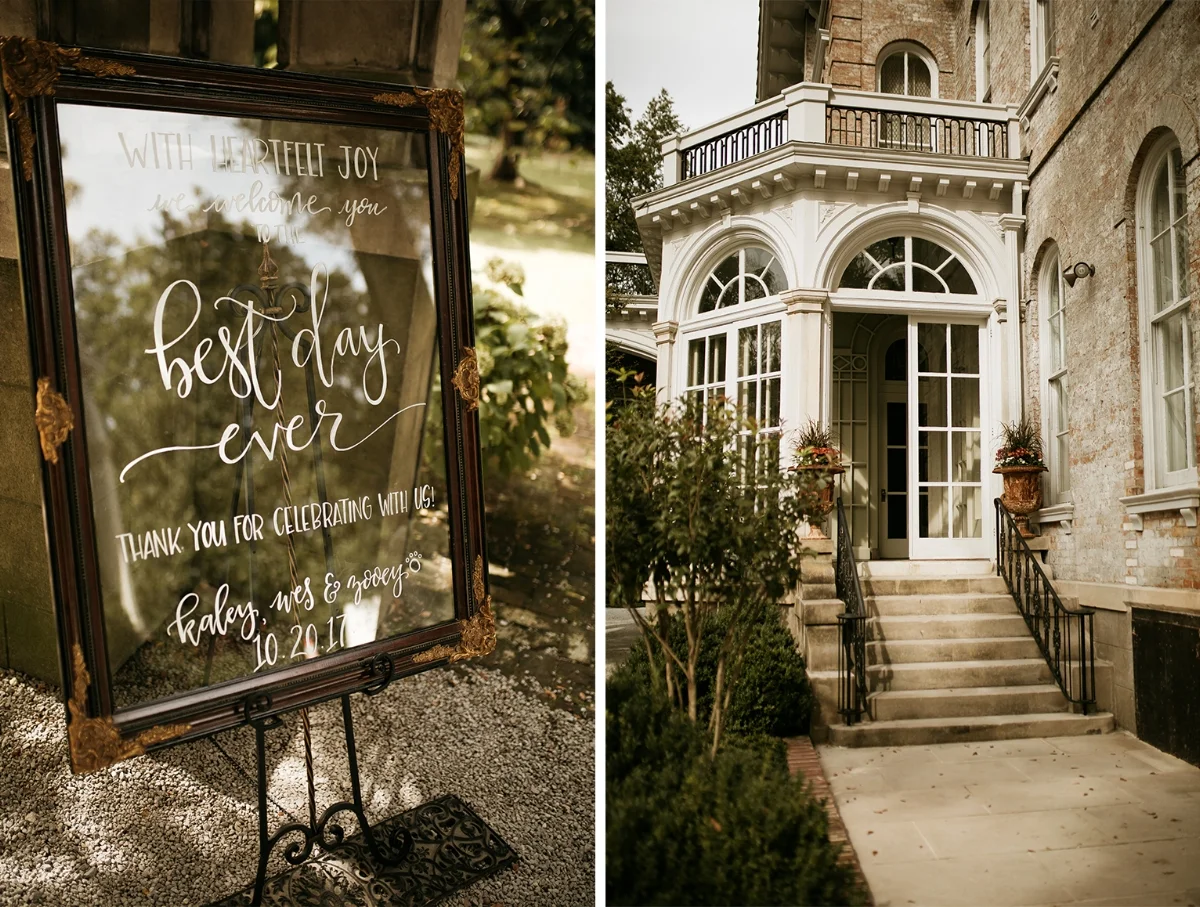 WITH HEARTFELT JOY
we welcome you
TO THE
best day
ever
THANK YOU FOR CELEBRATING WITH US!
kaley, wes & zooey
10.20.17